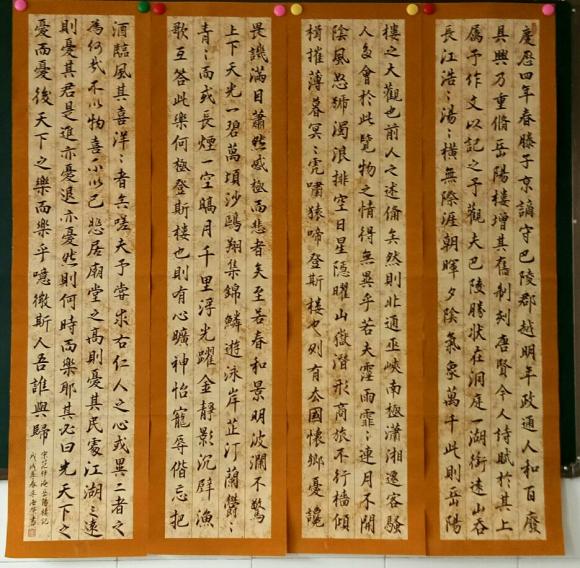 慶歷四年春滕子京謫守巴陵郡越明年政通人和百廢
具興乃重脩岳陽樓增其舊制刻唐賢今人詩賦於其上
屬予作文以記之予觀夫巴陵勝狀在洞庭一湖銜遠山吞
長江浩〻湯〻橫無際涯朝暉夕陰氣象萬千此則岳陽
樓之大觀也前人之述備矣然則北通巫峽南極瀟湘遷客騷
人多會於此覽物之情得無異乎若夫霪雨霏〻連月不開
陰風怒號濁浪排空日星隱曜山嶽潛形商旅不行檣傾
楫摧薄暮冥〻虎嘯猿啼登斯樓也則有去國懷鄉憂讒
畏譏滿目蕭然感極而悲者矣至若春和景明波瀾不驚
上下天光一碧萬頃沙鷗翔集錦鱗遊泳岸芷汀蘭鬱〻
青〻而或長煙一空皓月千里浮光躍金靜影沉璧漁
歌互答此樂何極登斯樓也則有心曠神怡寵辱偕忘把
酒臨風其喜洋〻者矣嗟夫予嘗求古仁人之心或異二者之
為何哉不以物喜不以己悲居廟堂之高則憂其民處江湖之遠
則憂其君是進亦憂退亦憂然則何時而樂耶其必曰先天下之
憂而憂後天下之樂而樂乎噫微斯人吾誰與歸
宋范仲淹岳陽樓記
戊戌年春